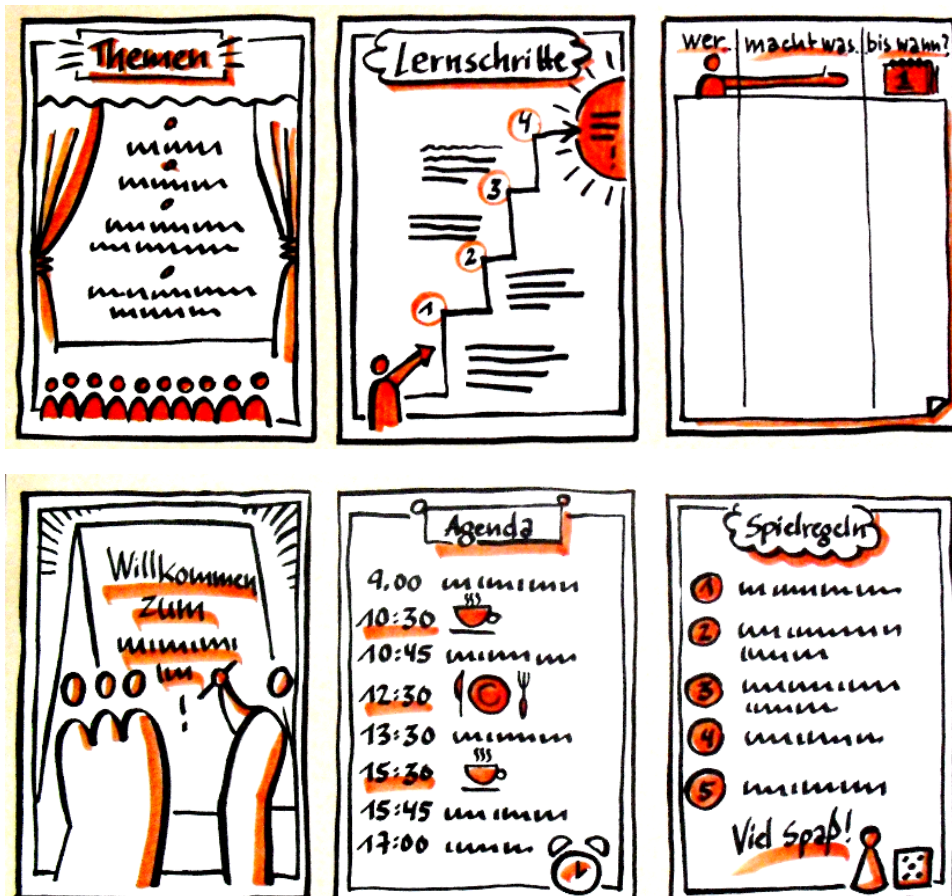 Themen
Lernschritte
4
3
2
1
wer. macht was. bis wann?
1
Willkommen
zum
!
Agenda
9.00
10:30
10:45
12:30
13:30
15:30
15:45
17:00
Spielregeln
1
2
3
4
5
Viel Spaß!